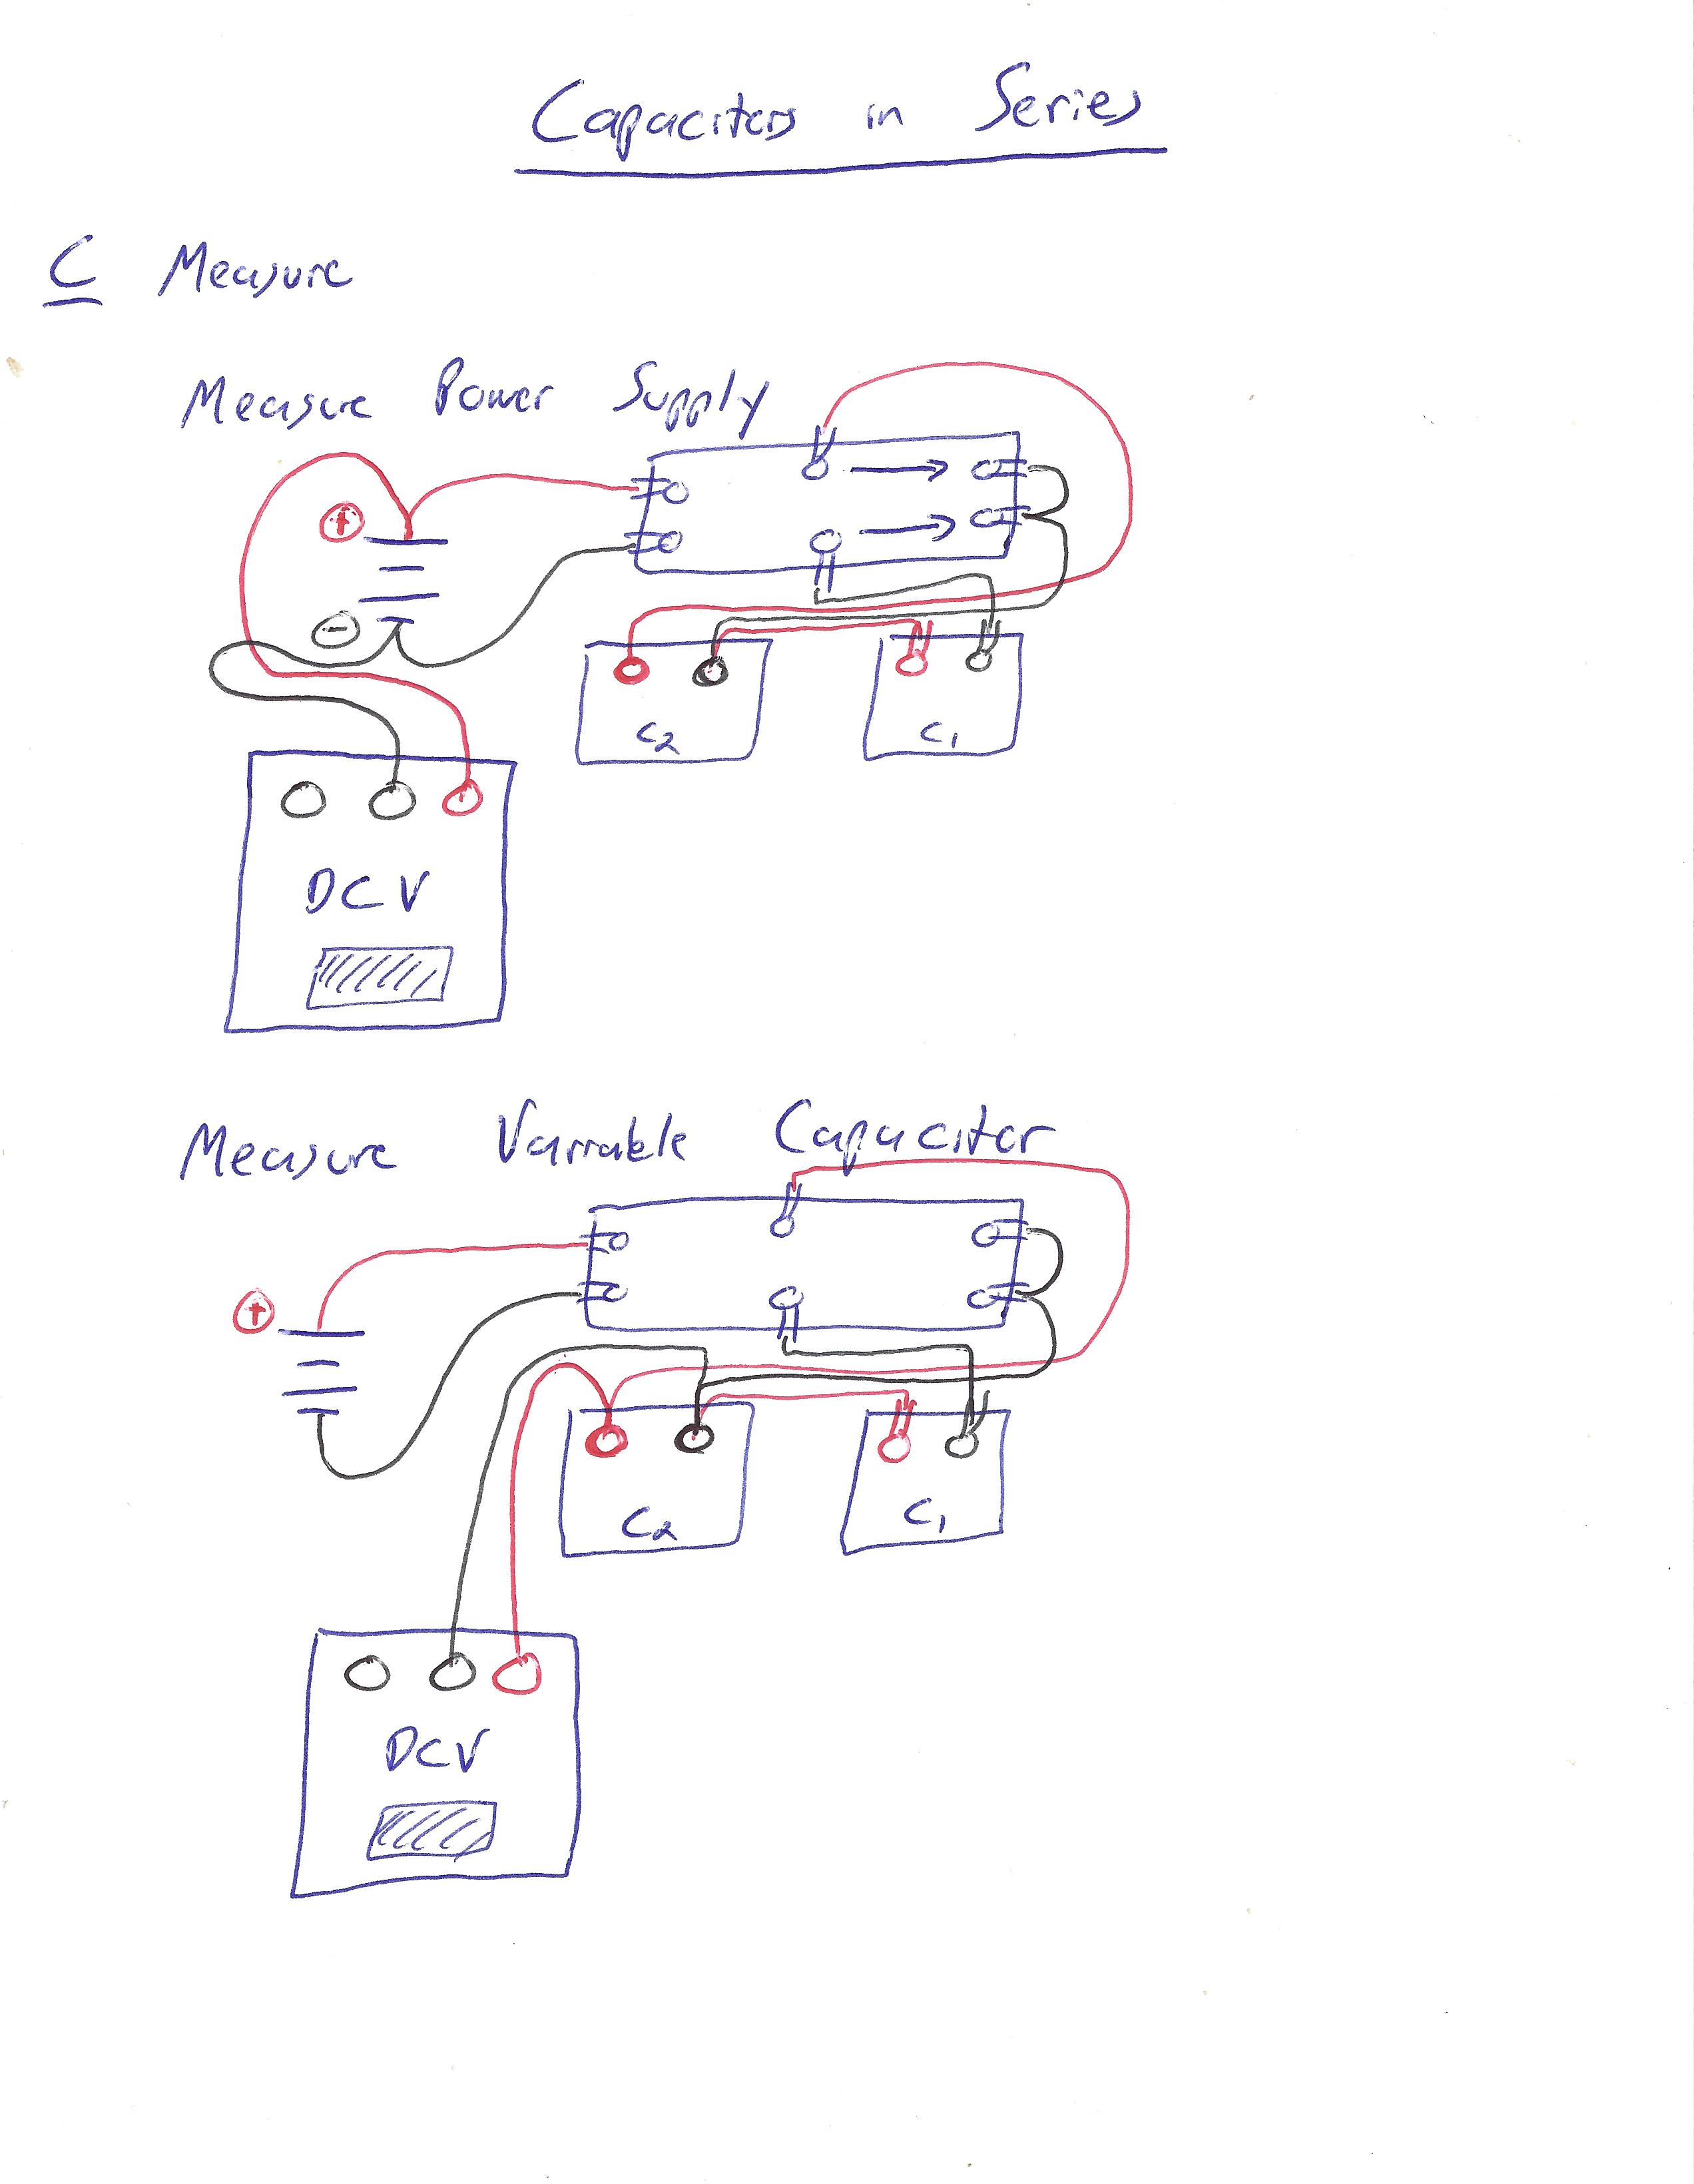 Capacitors in Series
C Measure
Measure Power Supply
+
−
C2
C1
DCV
Measure Variable Capacitor
+
C2
C1
DCV